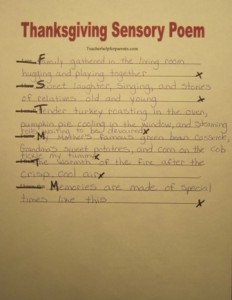 Thanksgiving Sensory Poem
Family gathered in the living room
hugging and playing together
Sweet laughter, singing, and stories
of relatives old and young
Tender turkey roasting in the oven,
pumpkin pie cooling in the window, and stuffing
waiting to be devoured
My Mother's famous green bean casserole,
Grandma's sweet potatoes, and corn on the cob
my tummy
The warmth of the fire after the
crisp, cool air
Memories are made of special
times like this